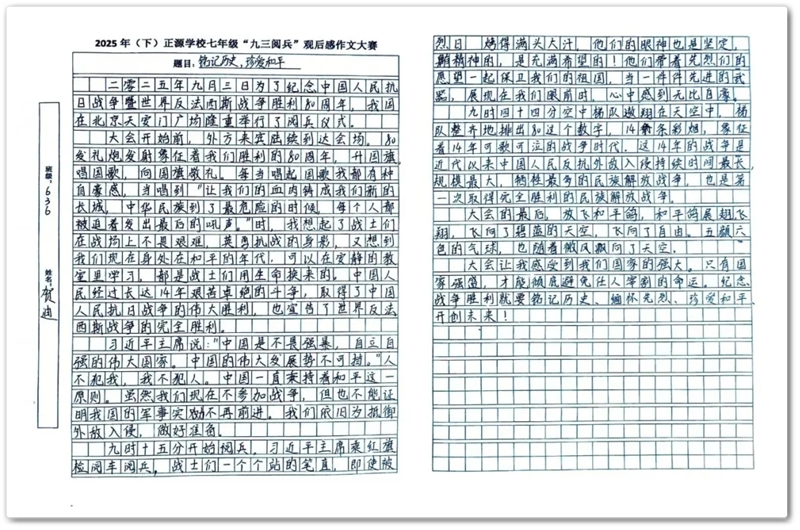 2025年（下）正源学校七年级“九三阅兵”观后感作文大赛
题目：铭记历史，珍爱和平
班级：636
姓名：贺迪
二零二五年九月三日为了纪念中国人民抗
日战争暨世界反法西斯战争胜利80周年，我国
在北京天安门广场隆重举行了阅兵仪式。
大会开始前，外方来宾陆续到达会场。80
发礼炮发射象征着我们胜利的80周年，升国旗，
唱国歌，向国旗敬礼。每当唱起国歌我都有种
自豪感，当唱到“让我们的血肉铸成我们新的
长城，中华民族到了最危险的时候，每个人都
被迫着发出最后的吼声。”时，我想起了战士们
在战场上不畏艰难，英勇抗战的身影，又想到
我们现在身处在和平的年代，可以在安静的教
室里学习，都是战士们用生命换来的。中国人
民经过长达14年艰苦卓绝的斗争，取得了中国
人民抗日战争的伟大胜利，也宣告了世界反法
西斯战争的完全胜利。
习近平主席说：“中国是不畏强暴，自立自
强的伟大国家。中国的伟大发展势不可挡。”人
不犯我，我不犯人。中国一直秉持着和平这一
原则。虽然我们现在不参加战争，但也不能证
明我国的军事实力不再前进。我们依旧为抵御
外敌入侵，做好准备。
九时十五分开始阅兵。习近平主席乘红旗
检阅车阅兵。战士们一个个站的笔直，即使被
烈日 烤得满头大汗，他们的眼神也是坚定，
有精神的，是充满希望的！他们带着先烈们的
愿望一起保卫我们的祖国，当一件件先进的武
器，展现在我们眼前时，心中感到无比自豪。
九时四十四分空中梯队遨翔在天空中，梯
队整齐地排出80这个数字，14条彩烟，象征
着14年可歌可泣的战争时代，这14年的战争是
近代以来中国人民反抗外敌入侵持续时间最长，
规模最大，牺牲最多的民族解放战争，也是第
一次取得完全胜利的民族解放战争。
大会的最后，放飞和平鸽，和平鸽展翅飞
翔，飞向了碧蓝的天空，飞向了自由。五颜六
色的气球，也随着微风飘向了天空。
大会让我感受到我们国家的强大。只有国
家强盛，才能彻底避免任人宰割的命运。纪念
战争胜利就要铭记历史、缅怀先烈、珍爱和平、
开创未来！